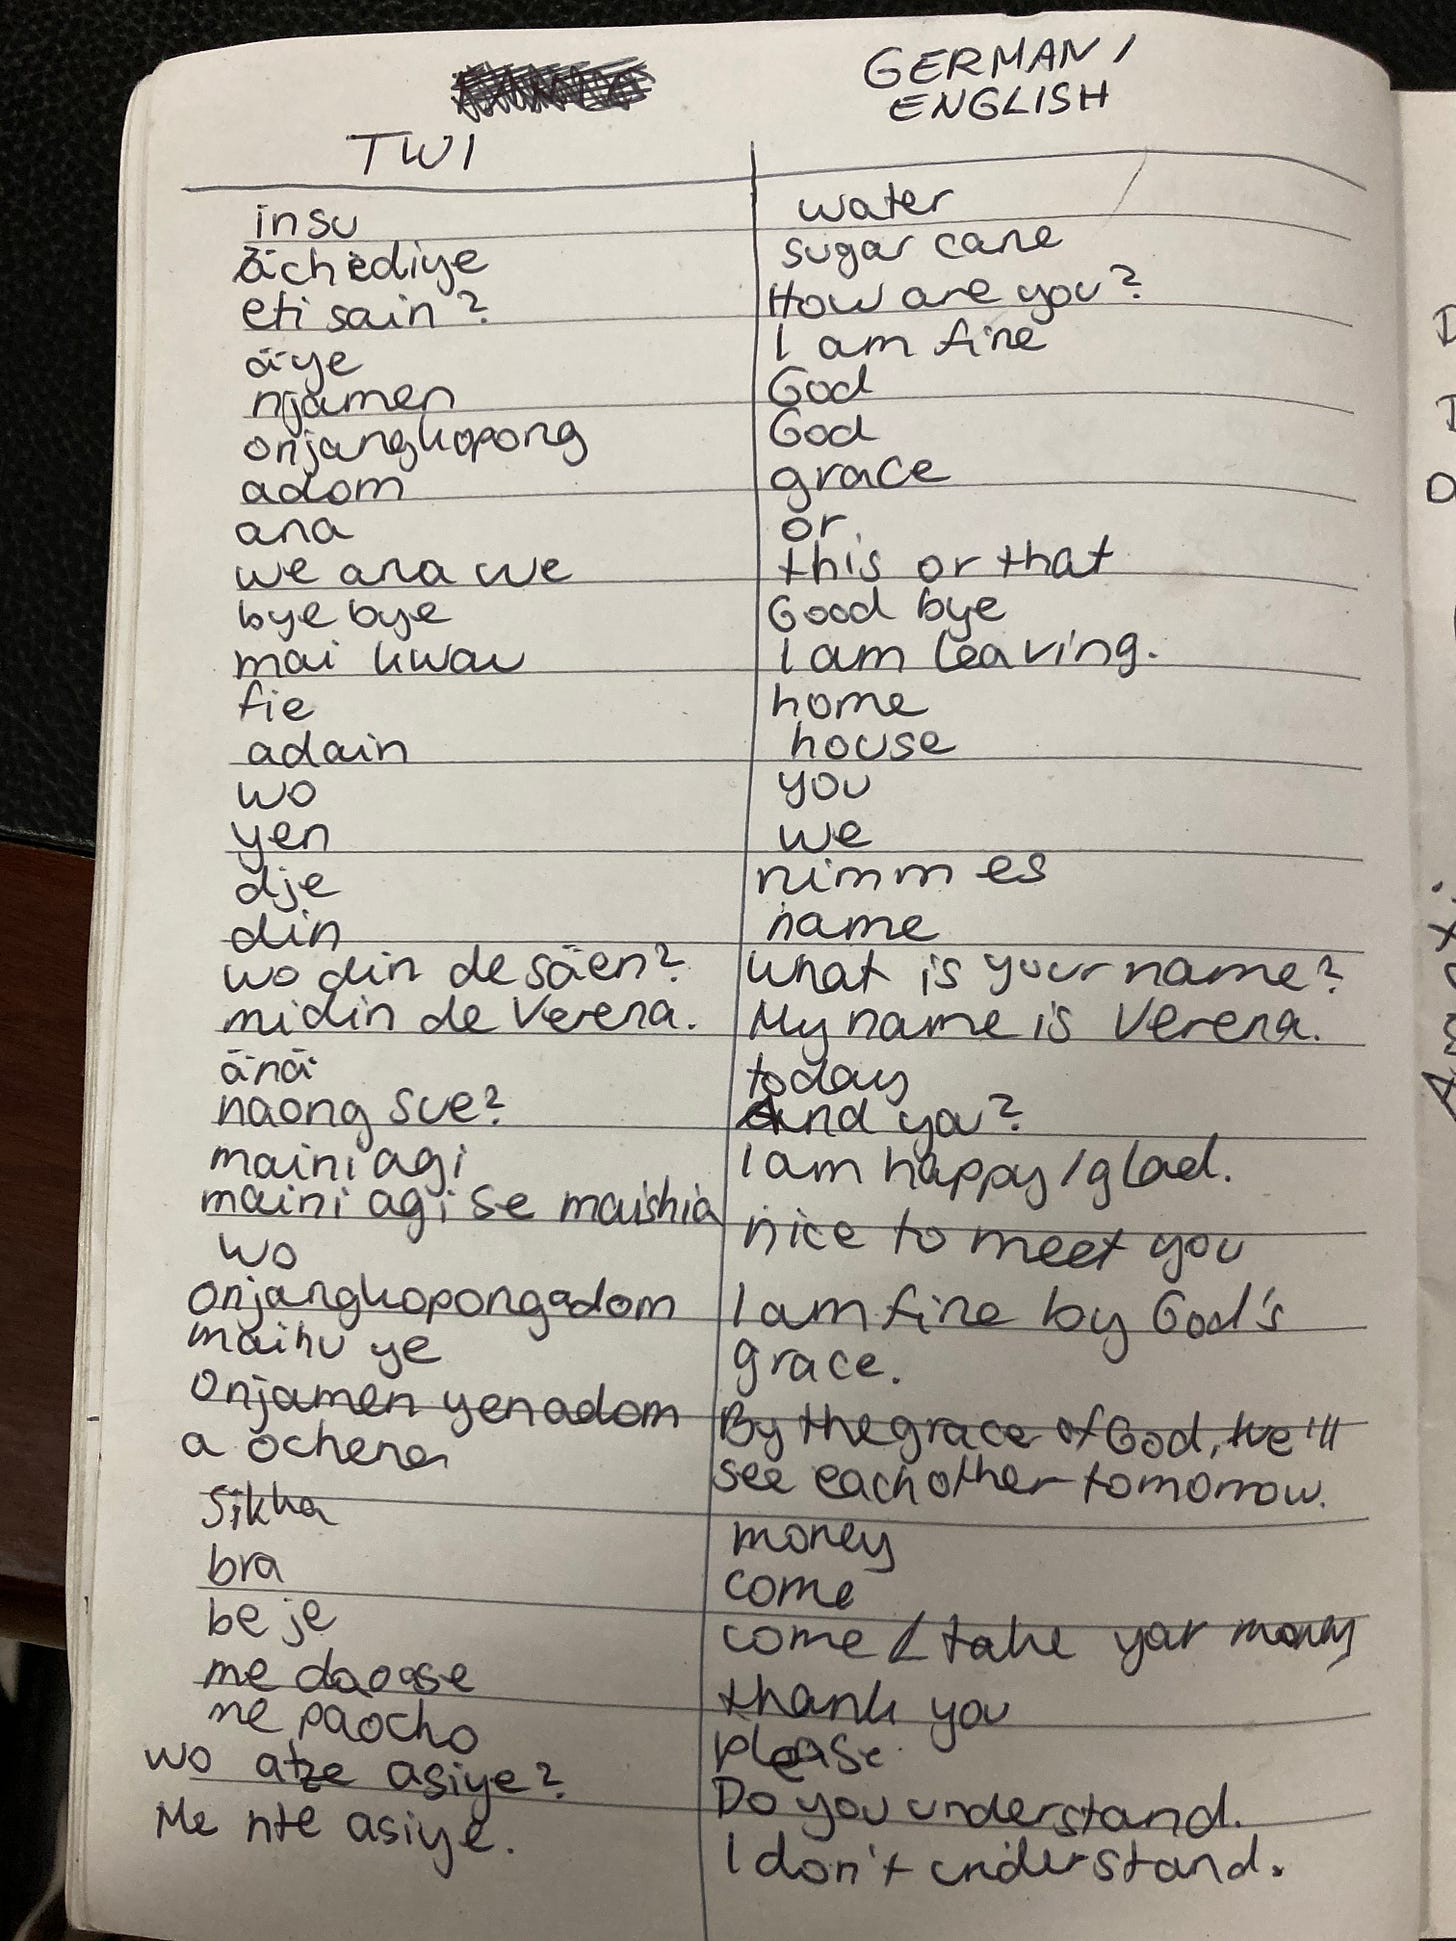 GERMAN /
ENGLISH
TWI
insu water
ächediye sugar cane
eti sain? How are you?
äye I am fine
njamen God
onjangkopong God
adom grace
ana or
we ana we this or that
bye bye Good bye
mai kwau I am leaving.
fie home
adain house
wo you
yen we
dje nimm es
din name
wo din de säen? What is your name?
midin de Verena. My name is Verena.
änä today
naong sue? And you?
maini agi I am happy/glad.
maini agi se maishia nice to meet you
wo
onjangkopongadom I am fine by God's
maihu ye grace.
Onjamen yenadom By the grace of God, we'll
a ochena see each other tomorrow.
Sikha money
bra come
be je come / take your money
me daoase thank you
me paocho please
wo atze asiye? Do you understand.
Me nte asiye. I don't understand.